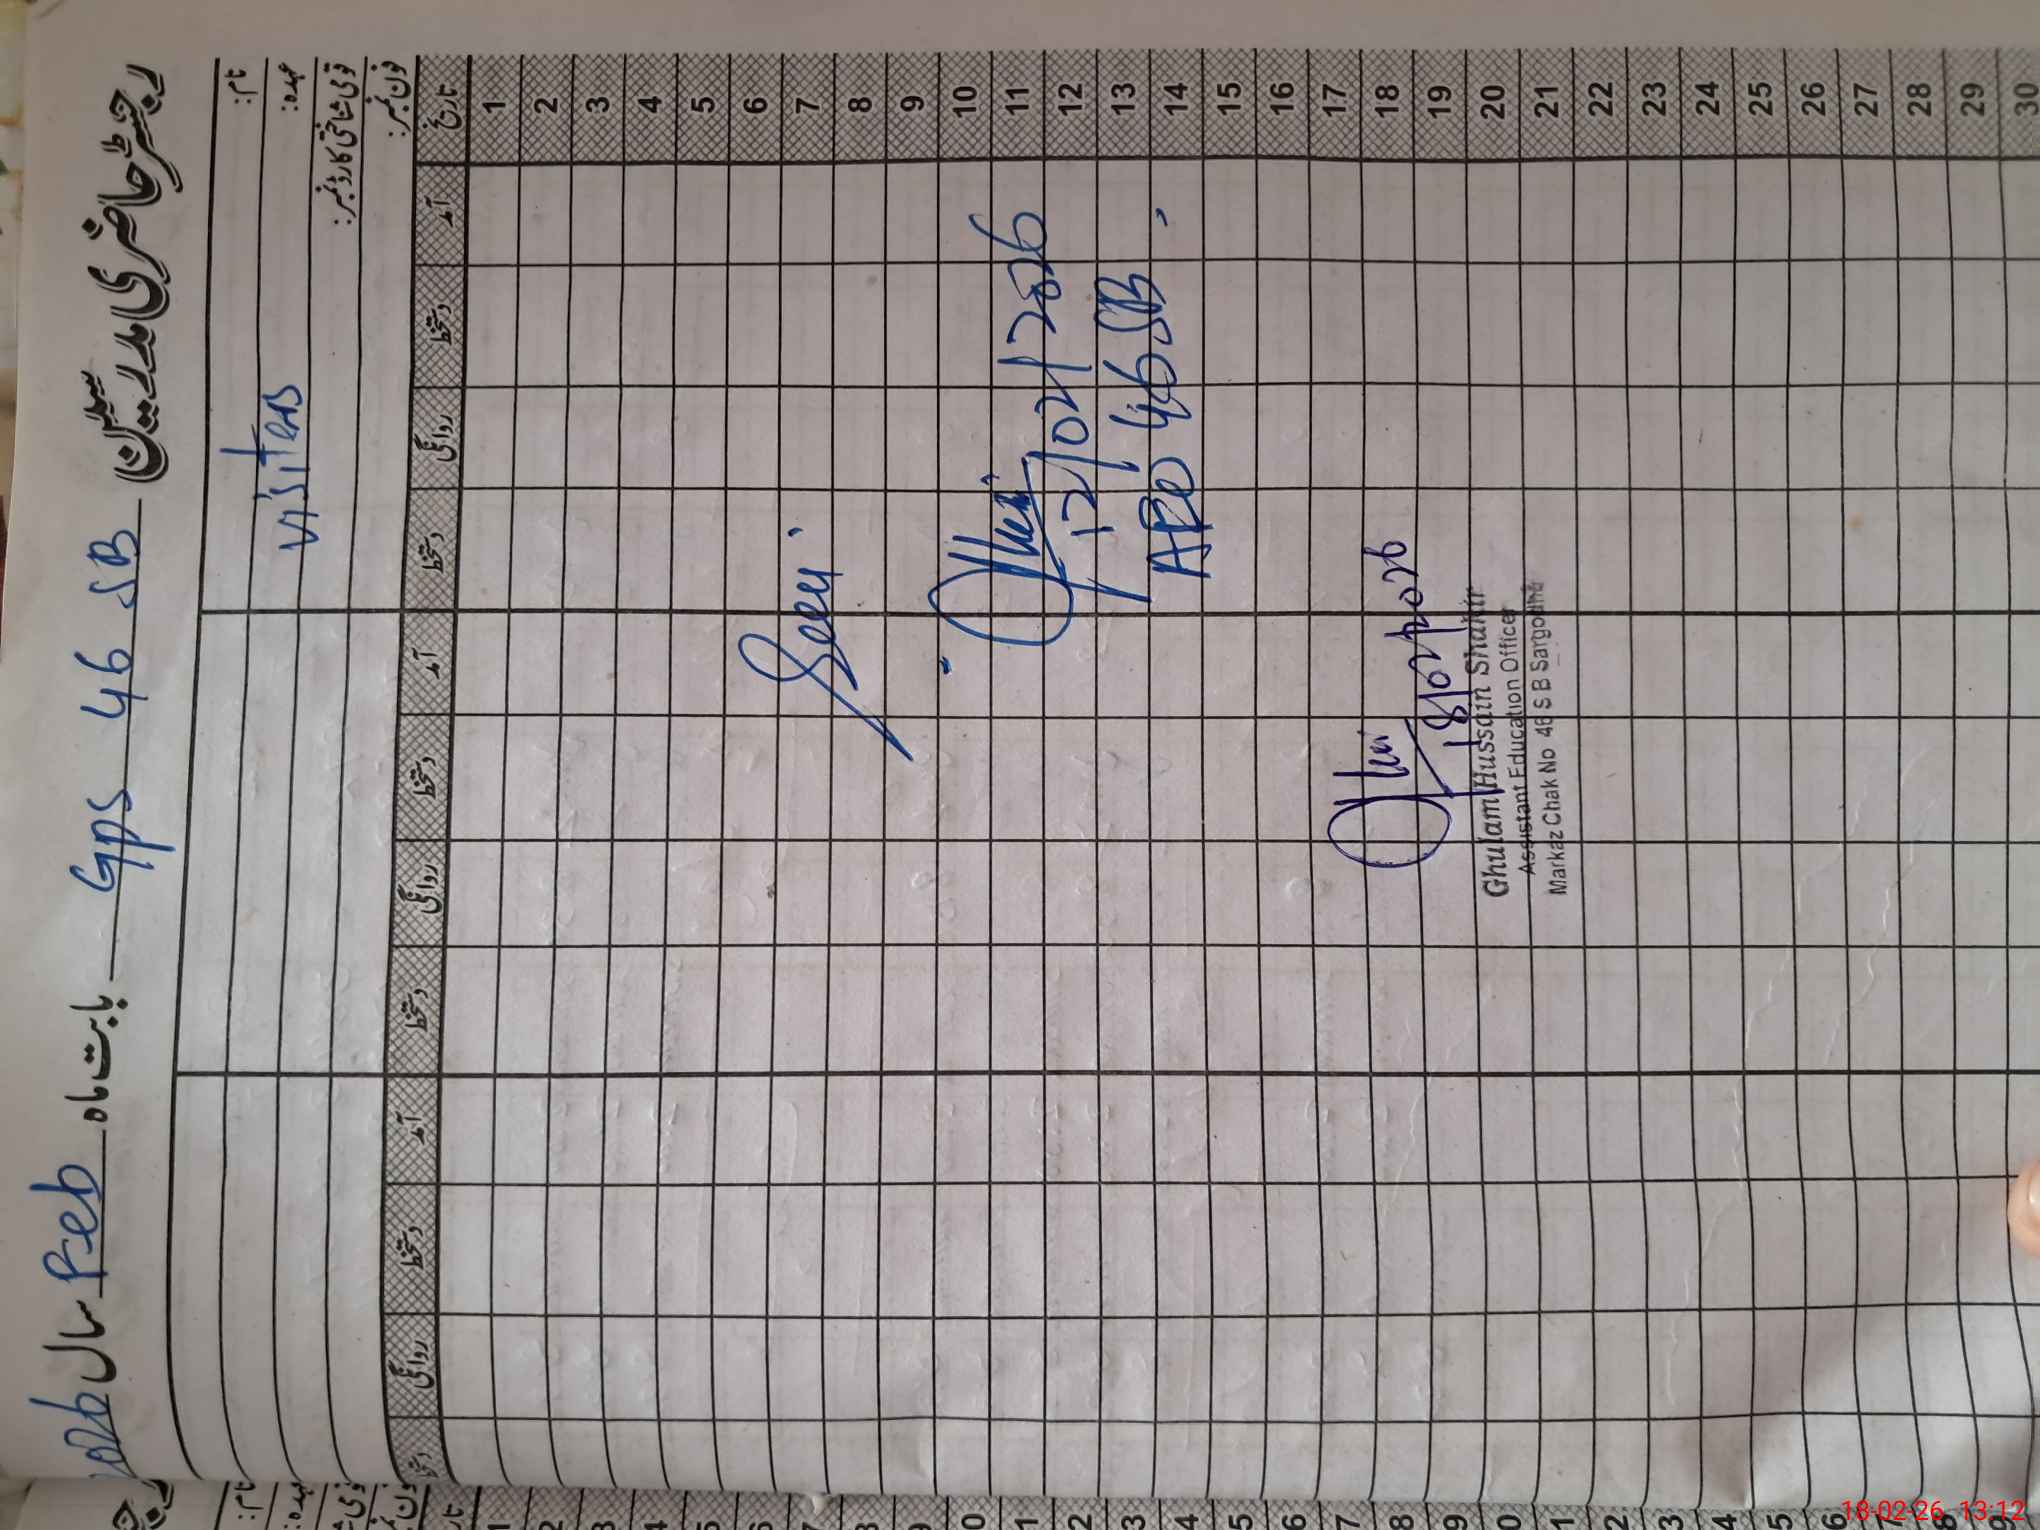 رجسٹر حاضری مدرسین سکول GPS 46 SB بابت ماہ Feb سال 2026
نام:
عہدہ: visitors
قومی شناختی کارڈ نمبر:
فون نمبر:
تاریخ آمد دستخط روانگی دستخط آمد دستخط روانگی دستخط آمد دستخط روانگی
1
2
3
4
5
6
7 Seen
8
9
10
11
12 12/02/2026
13
14 AEO 46 SB
15
16
17
18
19 18/02/2026
20 Ghulam Hussain Shakir
Assistant Education Officer
21 Markaz Chak No 46 S B Sargodha
22
23
24
25
26
27
28
29
30
18-02-26 13:12